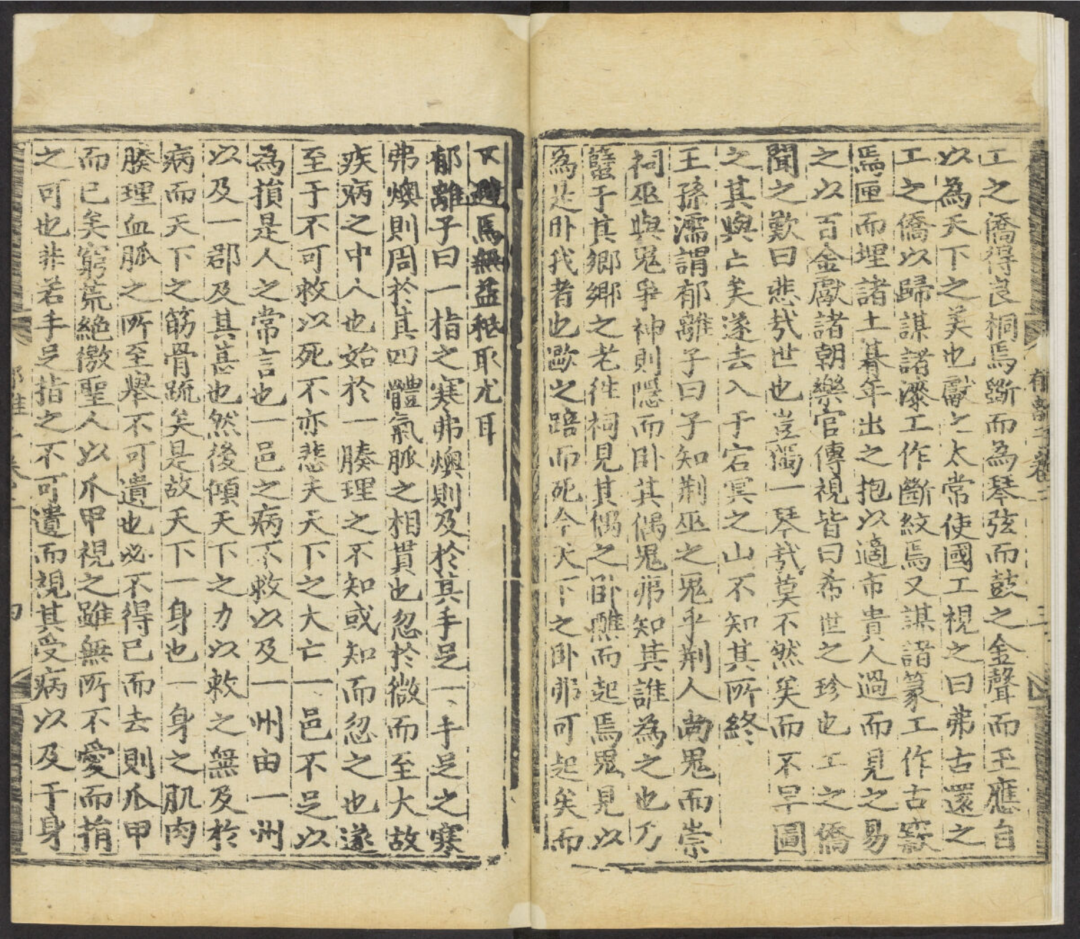 工之僑得良桐焉斲而為琴弦而鼓之金聲而玉應自
以為天下之美也獻之太常使國工視之曰弗古還之
工之僑以歸謀諸漆工作斷紋焉又謀諸篆工作古窾
焉匣而埋諸土朞年出之抱以適市貴人過而見之易
之以百金獻諸朝樂官傳視皆曰希世之珍也工之僑
聞之歎曰悲㢤世也豈獨一琴㢤莫不然矣而不早圖
之其與亡矣遂去入于宕冥之山不知其所終
王孫濡謂郁離子曰子知荆巫之鬼乎荆人尚鬼而崇
祠巫與鬼爭神則隱而卧其偶鬼弗知其誰為之也乃
蠥于其鄉鄉之老徃祠見其偶之卧醮而起焉鬼見以
為是卧我者也毆之踣而死今天下之卧弗可起矣而
不避焉無益秪取尤耳
郁離子曰一指之寒弗燠則及於其手足一手足之寒
弗燠則周於其四體氣脈之相貫也忽於微而至大故
疾病之中人也始於一腠理之不知或知而忽之也遂
至于不可救以死不亦悲夫天下之大亡一邑不足以
為損是人之常言也一邑之病不救以及一州由一州
以及一郡及其甚也然後傾天下之力以救之無及於
病而天下之筋骨疏矣是故天下一身也一身之肌肉
腠理血脈之所至舉不可遺也必不得已而去則爪甲
而已矣窮荒絶徼聖人以爪甲視之雖無所不愛而捐
之可也非若手足指之不可遺而視其受病以及于身
郁離子卷一
三
四